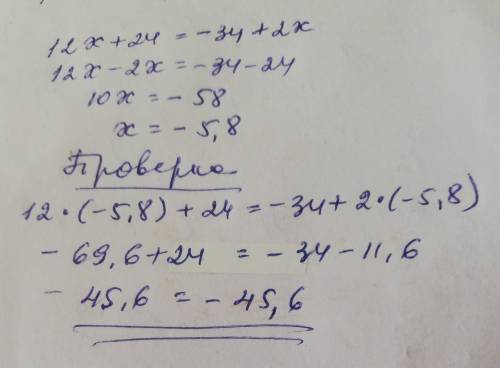 12x + 24 = -34 + 2x
12x - 2x = -34 - 24
10x = - 58
x = - 5,8
Проверка
12 · (-5,8) + 24 = -34 + 2 · (-5,8)
- 69,6 + 24 = - 34 - 11,6
- 45,6 = - 45,6